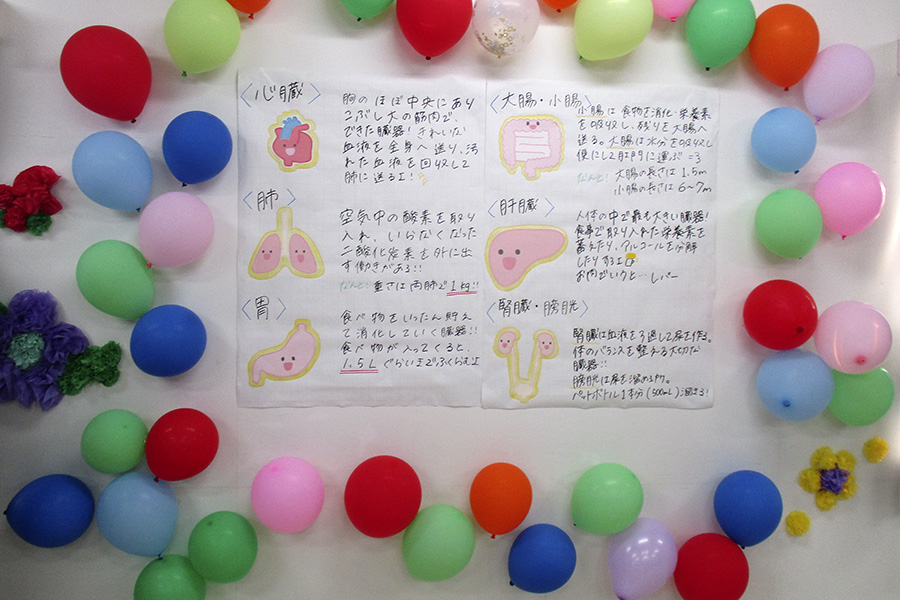 〈心臓〉
胸のほぼ中央にあり
こぶし大の筋肉で、
できた臓器！きれいな
血液を全身へ送り、汚
れた血液を回収して
肺に送るよ！
〈肺〉
空気中の酸素を取り
入れ、いらなくなった
二酸化炭素を外に出
す働きがある!!
なんと！重さは両肺で1kg!!
〈胃〉
食べ物をいったん貯え
て消化していく臓器!!
食べ物が入ってくると、
1.5Lぐらいまでふくらむよ
〈大腸・小腸〉
小腸は食物を消化・栄養素
を吸収し、残りを大腸へ
送る。大腸は水分を吸収し
便にして肛門に運ぶ=3
なんと！大腸の長さは1.5m
小腸の長さは6〜7m
〈肝臓〉
人体の中で最も大きい臓器！
食事で取り入れた栄養素を
蓄えたり、アルコールを分解
したりするよ
お肉でいうと…レバー
〈腎臓・膀胱〉
腎臓は血液をろ過して尿を作る。
体のバランスを整える大切な
臓器!!
膀胱は尿を溜める所。
ペットボトル1本分(500mL)溜まる！